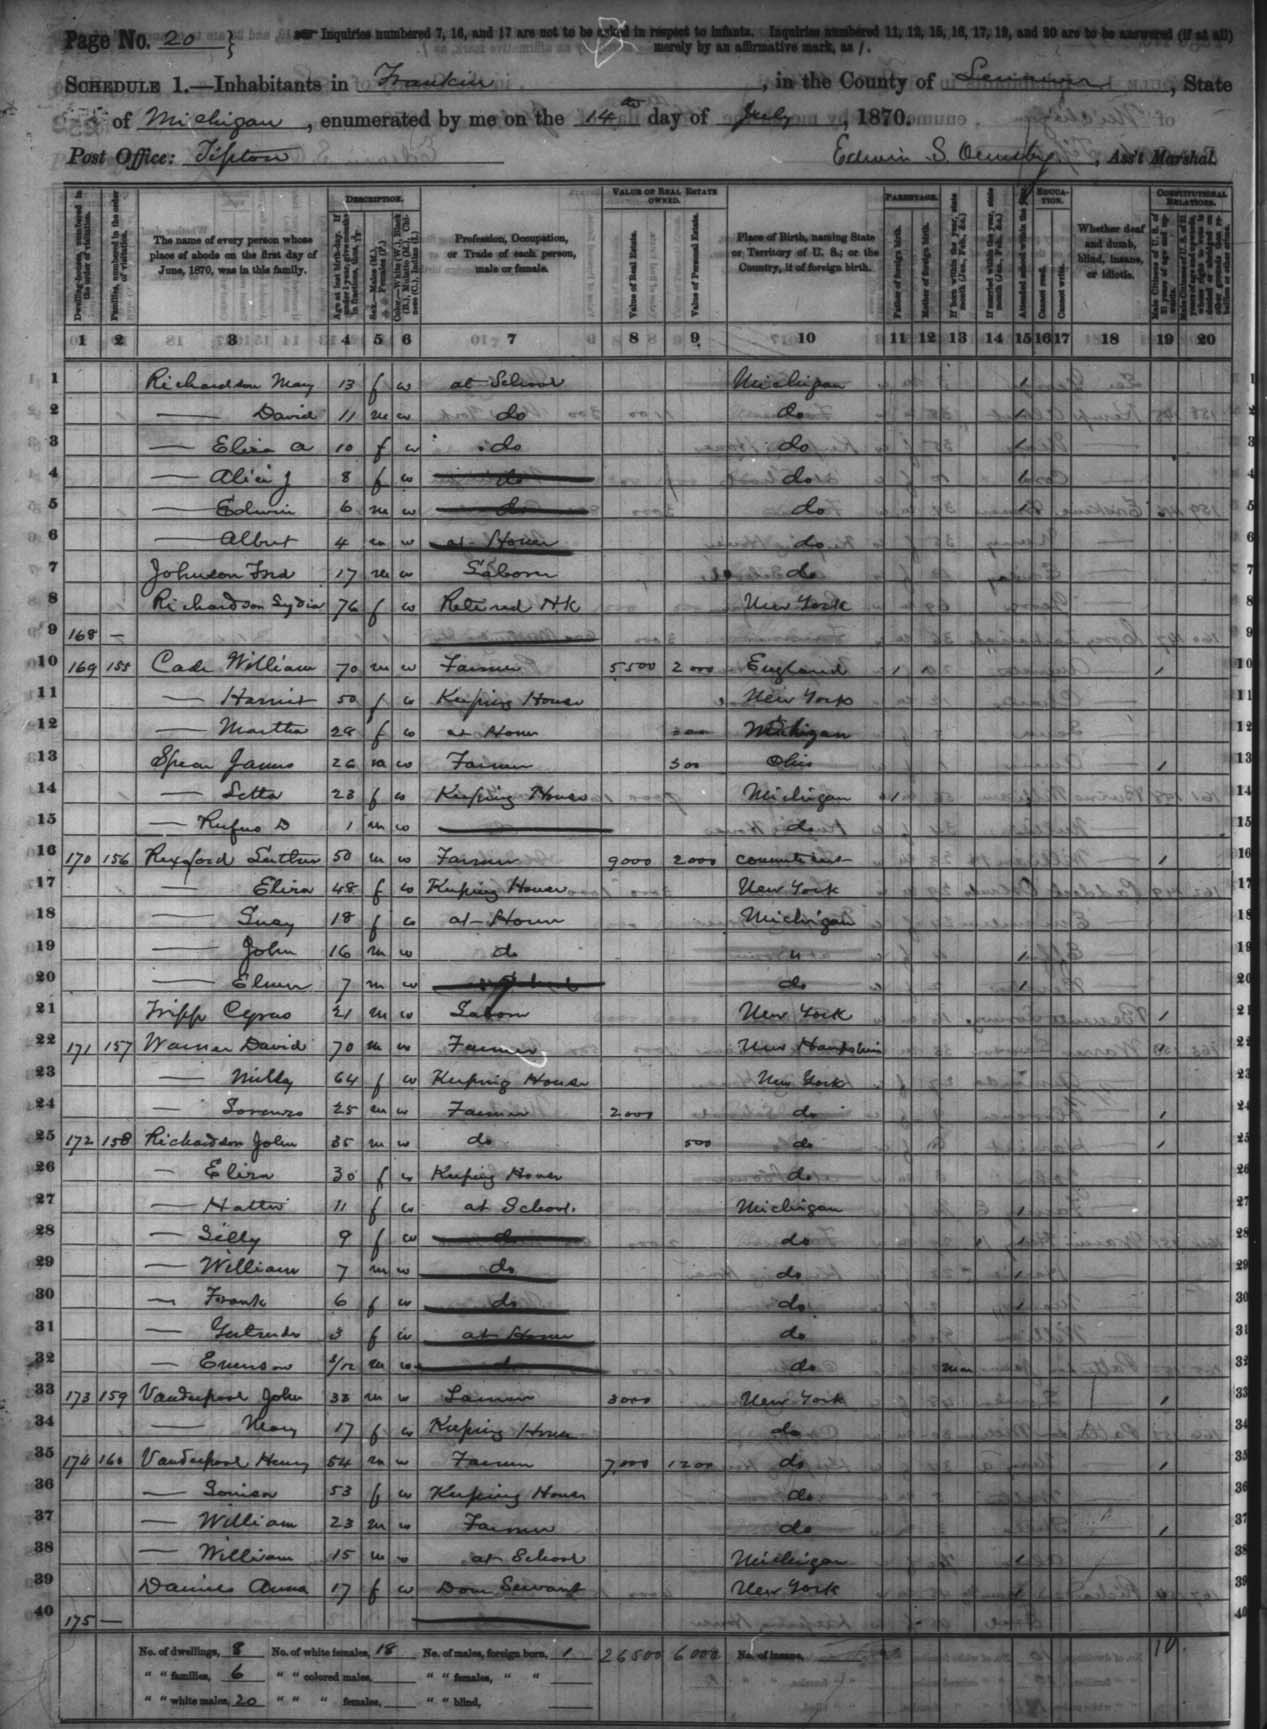 Page No. 20 } Inquiries numbered 7, 16, and 17 are not to be asked in respect to infants. Inquiries numbered 11, 12, 15, 16, 17, 19, and 20 are to be answered (if at all)
merely by an affirmative mark, as /.
SCHEDULE 1.—Inhabitants in Franklin, in the County of Lenawee, State
of Michigan, enumerated by me on the 14th day of July, 1870.
Post Office: Tipton Edwin S. Ormsby, Ass't Marshal.
DESCRIPTION. VALUE OF REAL ESTATE OWNED. PARENTAGE. EDUCATION. CONSTITUTIONAL RELATIONS.
Dwelling-houses, numbered in the order of visitation.
Families, numbered in the order of visitation.
The name of every person whose place of abode on the first day of June, 1870, was in this family.
Age at last birth-day. If under 1 year, give months in fractions, thus, 3/12
Sex.—Males (M.), Females (F.)
Color.—White (W.), Black (B.), Mulatto (M.), Chinese (C.), Indian (I.)
Profession, Occupation, or Trade of each person, male or female.
Value of Real Estate.
Value of Personal Estate.
Place of Birth, naming State or Territory of U. S.; or the Country, if of foreign birth.
Father of foreign birth.
Mother of foreign birth.
If born within the year, state month (Jan., Feb., &c.)
If married within the year, state month (Jan., Feb., &c.)
Attended school within the year.
Cannot read.
Cannot write.
Whether deaf and dumb, blind, insane, or idiotic.
1 2 3 4 5 6 7 8 9 10 11 12 13 14 15 16 17 18 19 20
1 Richardson May 13 f w at School Michigan 1 1
2 — David 11 m w do do 1 2
3 — Eliza A 10 f w do do 1 3
4 — Alice J 8 f w do do 1 4
5 — Edwin 6 m w do do 1 5
6 — Albert 4 m w at Home do 6
7 Johnson Fred 17 m w Laborer do 7
8 Richardson Lydia 76 f w Retired H.K New York 8
9 168 — 9
10 169 155 Cade William 70 m w Farmer 5500 2000 England 1 1 1 10
11 — Harriet 50 f w Keeping House New York 11
12 — Martha 28 f w at Home 300 Michigan 12
13 Spear James 26 m w Farmer 500 Ohio 1 13
14 — Letta 23 f w Keeping House Michigan 1 14
15 — Rufus D 1 m w do 15
16 170 156 Rexford Luther 50 m w Farmer 9000 2000 Connecticut 1 16
17 — Eliza 48 f w Keeping House New York 17
18 — Lucy 18 f w at Home Michigan 18
19 — John 16 m w do " 1 19
20 — Elmer 7 m w do 1 20
21 Tripp Cyrus 21 m w Laborer New York 1 21
22 171 157 Warner David 70 m w Farmer New Hampshire 1 22
23 — Milly 64 f w Keeping House New York 23
24 — Lorenzo 25 m w Farmer 2000 do 1 24
25 172 158 Richardson John 35 m w do 500 do 1 25
26 — Eliza 30 f w Keeping House do 26
27 — Hattie 11 f w at School. Michigan 1 27
28 — Lilly 9 f w do do 1 28
29 — William 7 m w do do 1 29
30 — Frank 6 f w do do 1 30
31 — Gertrude 3 f w at Home do 31
32 — Emerson 3/12 m w do do Mar 32
33 173 159 Vanderpool John 33 m w Farmer 3000 New York 1 33
34 — Mary 17 f w Keeping House do 34
35 174 160 Vanderpool Henry 54 m w Farmer 7,000 1200 do 1 35
36 — Louisa 53 f w Keeping House do 36
37 — William 23 m w Farmer do 1 37
38 — William 15 m w at School Michigan 1 38
39 Daines Anna 17 f w Dom Servant New York 39
40 175 — 40
No. of dwellings, 8 No. of white females, 18 No. of males, foreign born, 1 26500 6000 No. of insane, 10
" " families, 6 " " colored males, " " females, " "
" " white males, 20 " " " females, " " blind,